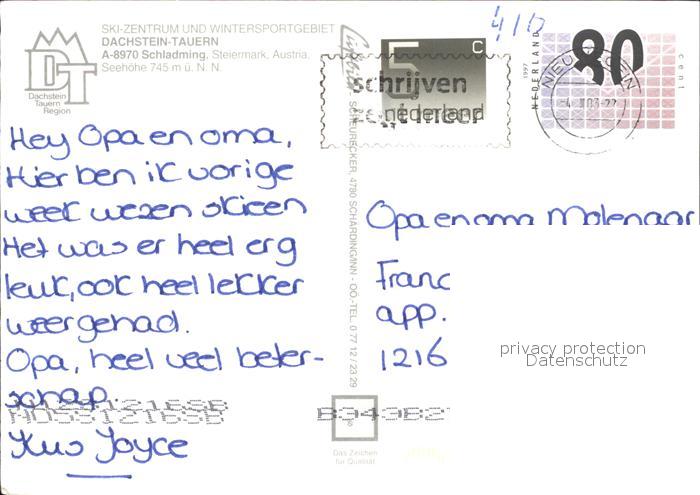 SKI-ZENTRUM UND WINTERSPORTGEBIET
DACHSTEIN-TAUERN
A-8970 Schladming, Steiermark, Austria.
Seehöhe 745 m ü. N. N.
DT
Dachstein
Tauern
Region
Hey Opa en oma,
Hier ben ik vorige
week wezen skieen
Het was er heel erg
leuk, ook heel lekker
weer gehad.
Opa, heel veel beter-
schap.
Kus Joyce
SCHEURECKER, 4780 SCHÄRDING/INN - OÖ.-TEL. 0 77 12 / 23 29
Das Zeichen
für Qualität
5 c
nederland
schrijven
1997
NEDERLAND
80
cent
Opa en oma Molenaar
Franc
app.
1216
privacy protection
Datenschutz